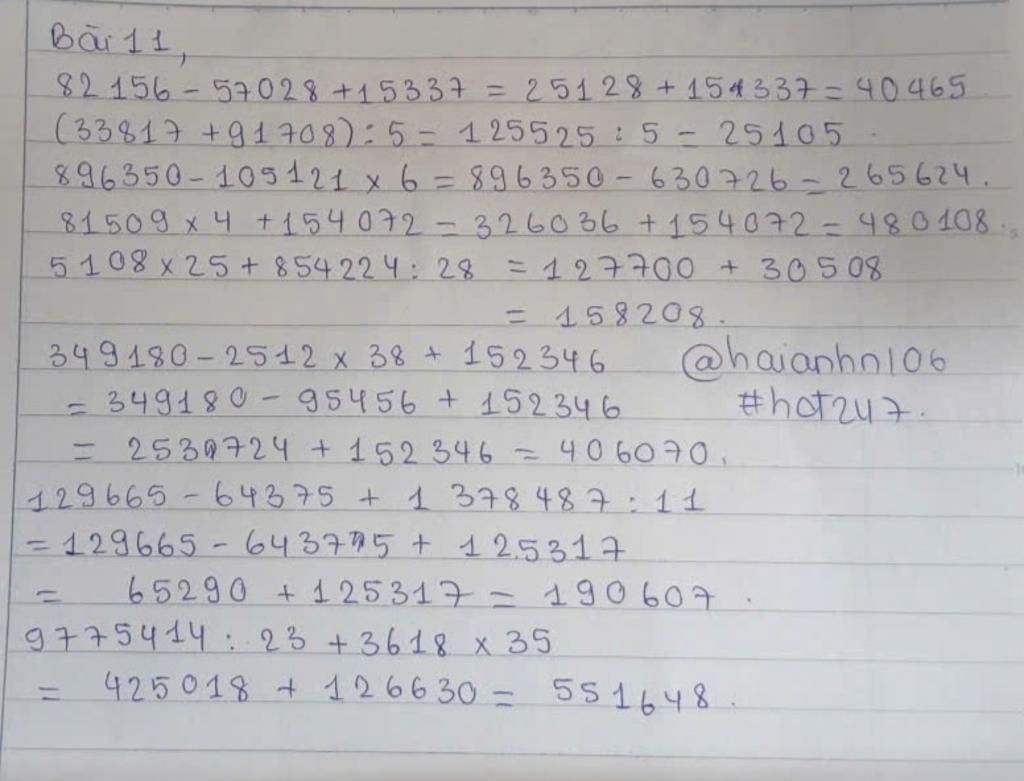 Bài 11,
82156 - 57028 + 15337 = 25128 + 151337 = 40465
(33817 + 91708) : 5 = 125525 : 5 = 25105.
896350 - 105121 x 6 = 896350 - 630726 = 265624.
81509 x 4 + 154072 = 326036 + 154072 = 480108.
5108 x 25 + 854224 : 28 = 127700 + 30508
= 158208.
349180 - 2512 x 38 + 152346 @haianhn106
= 349180 - 95456 + 152346 #hot247.
= 253724 + 152346 = 406070.
129665 - 64375 + 1 378487 : 11
= 129665 - 64375 + 125317
= 65290 + 125317 = 190607.
9775414 : 23 + 3618 x 35
= 425018 + 126630 = 551648.